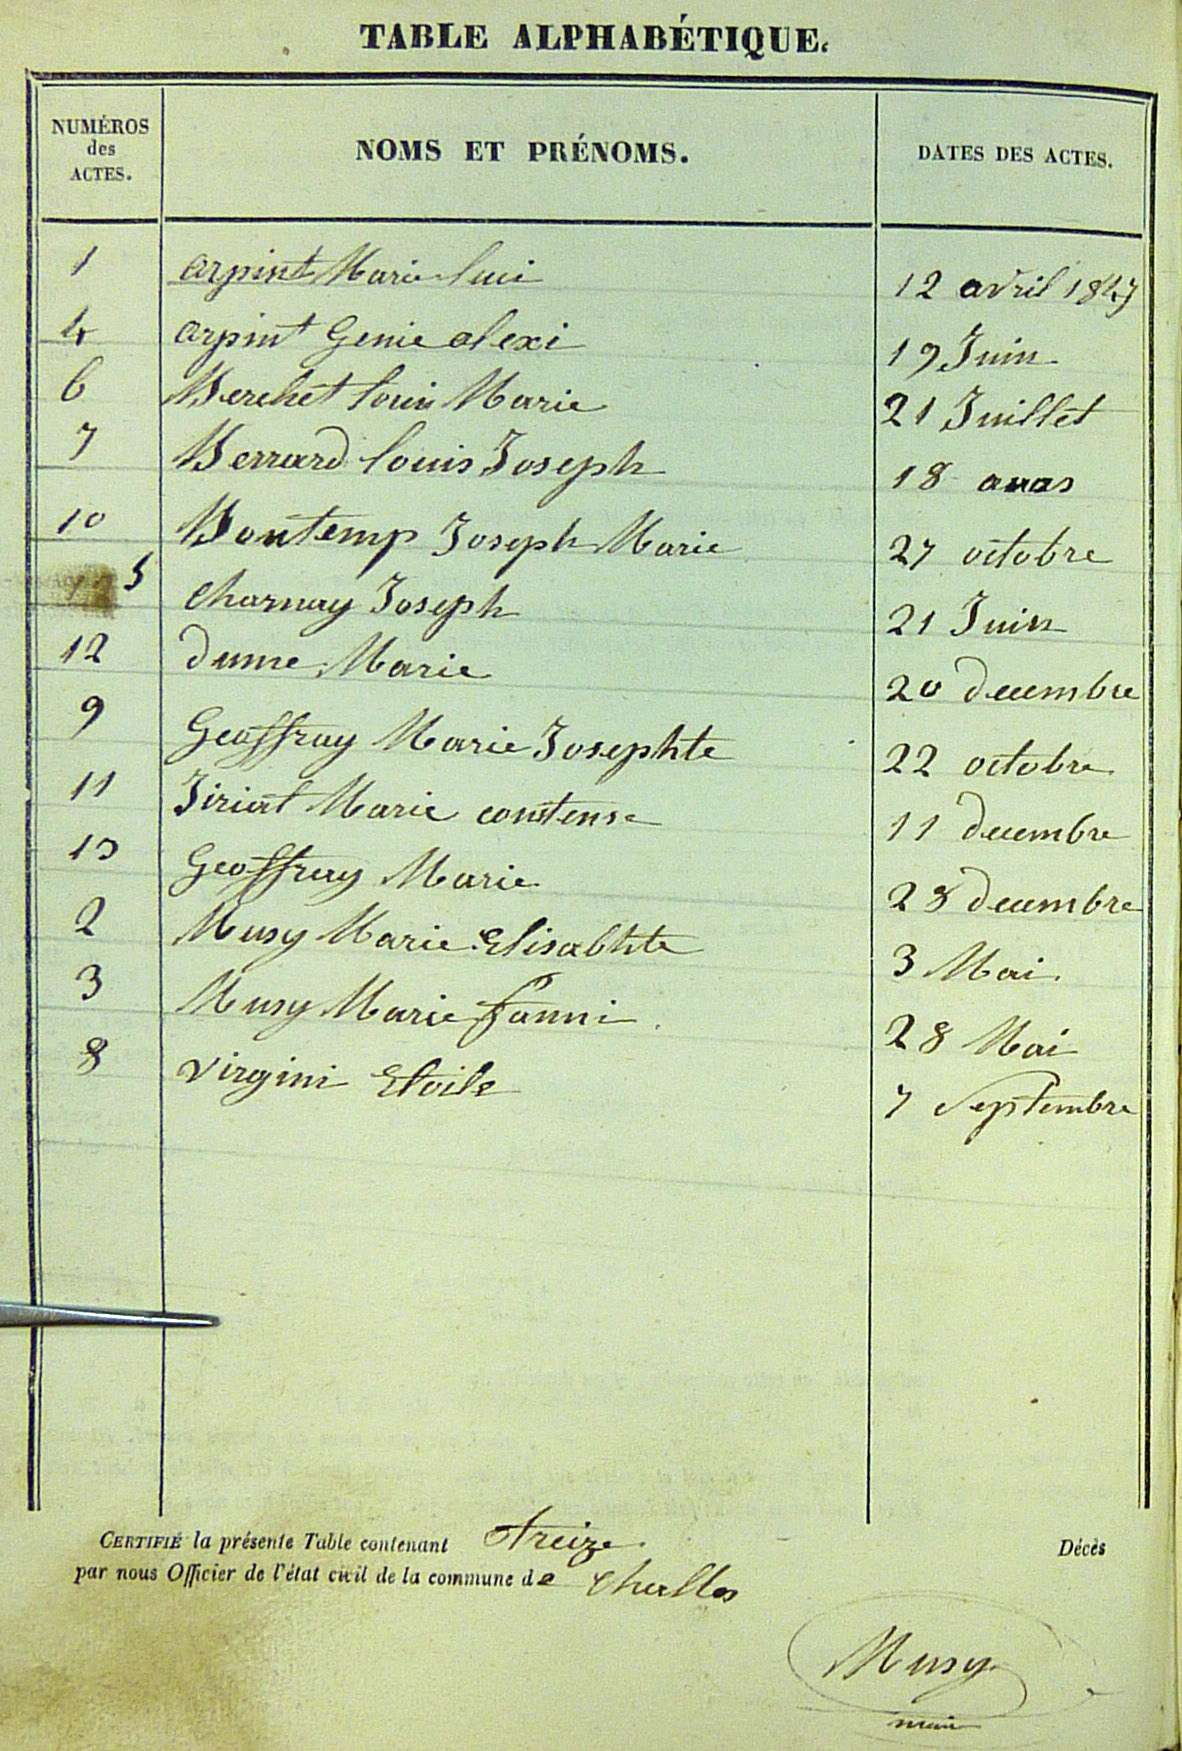 TABLE ALPHABÉTIQUE.
NUMÉROS des ACTES. NOMS ET PRÉNOMS. DATES DES ACTES.
1 arpint Marie lui 12 avril 1847
4 arpint Genie alexi 19 Juin
6 Berchet louis Marie 21 Juillet
7 Berrard louis Joseph 18
10 Bontemp Joseph Marie 27 octobre
5 Charnay Joseph 21 Juin
12 dume Marie 20 decembre
9 Geoffray Marie Josephte 22 octobre
11 Jiriat Marie constense 11 decembre
13 Geoffray Marie 28 decembre
2 Musy Marie Elisabhte 3 Mai
3 Musy Marie fanni 28 Mai
8 virgini Etoile 7 Septembre
CERTIFIÉ la présente Table contenant treize Décès
par nous Officier de l'état civil de la commune de Challes
Musy
maire